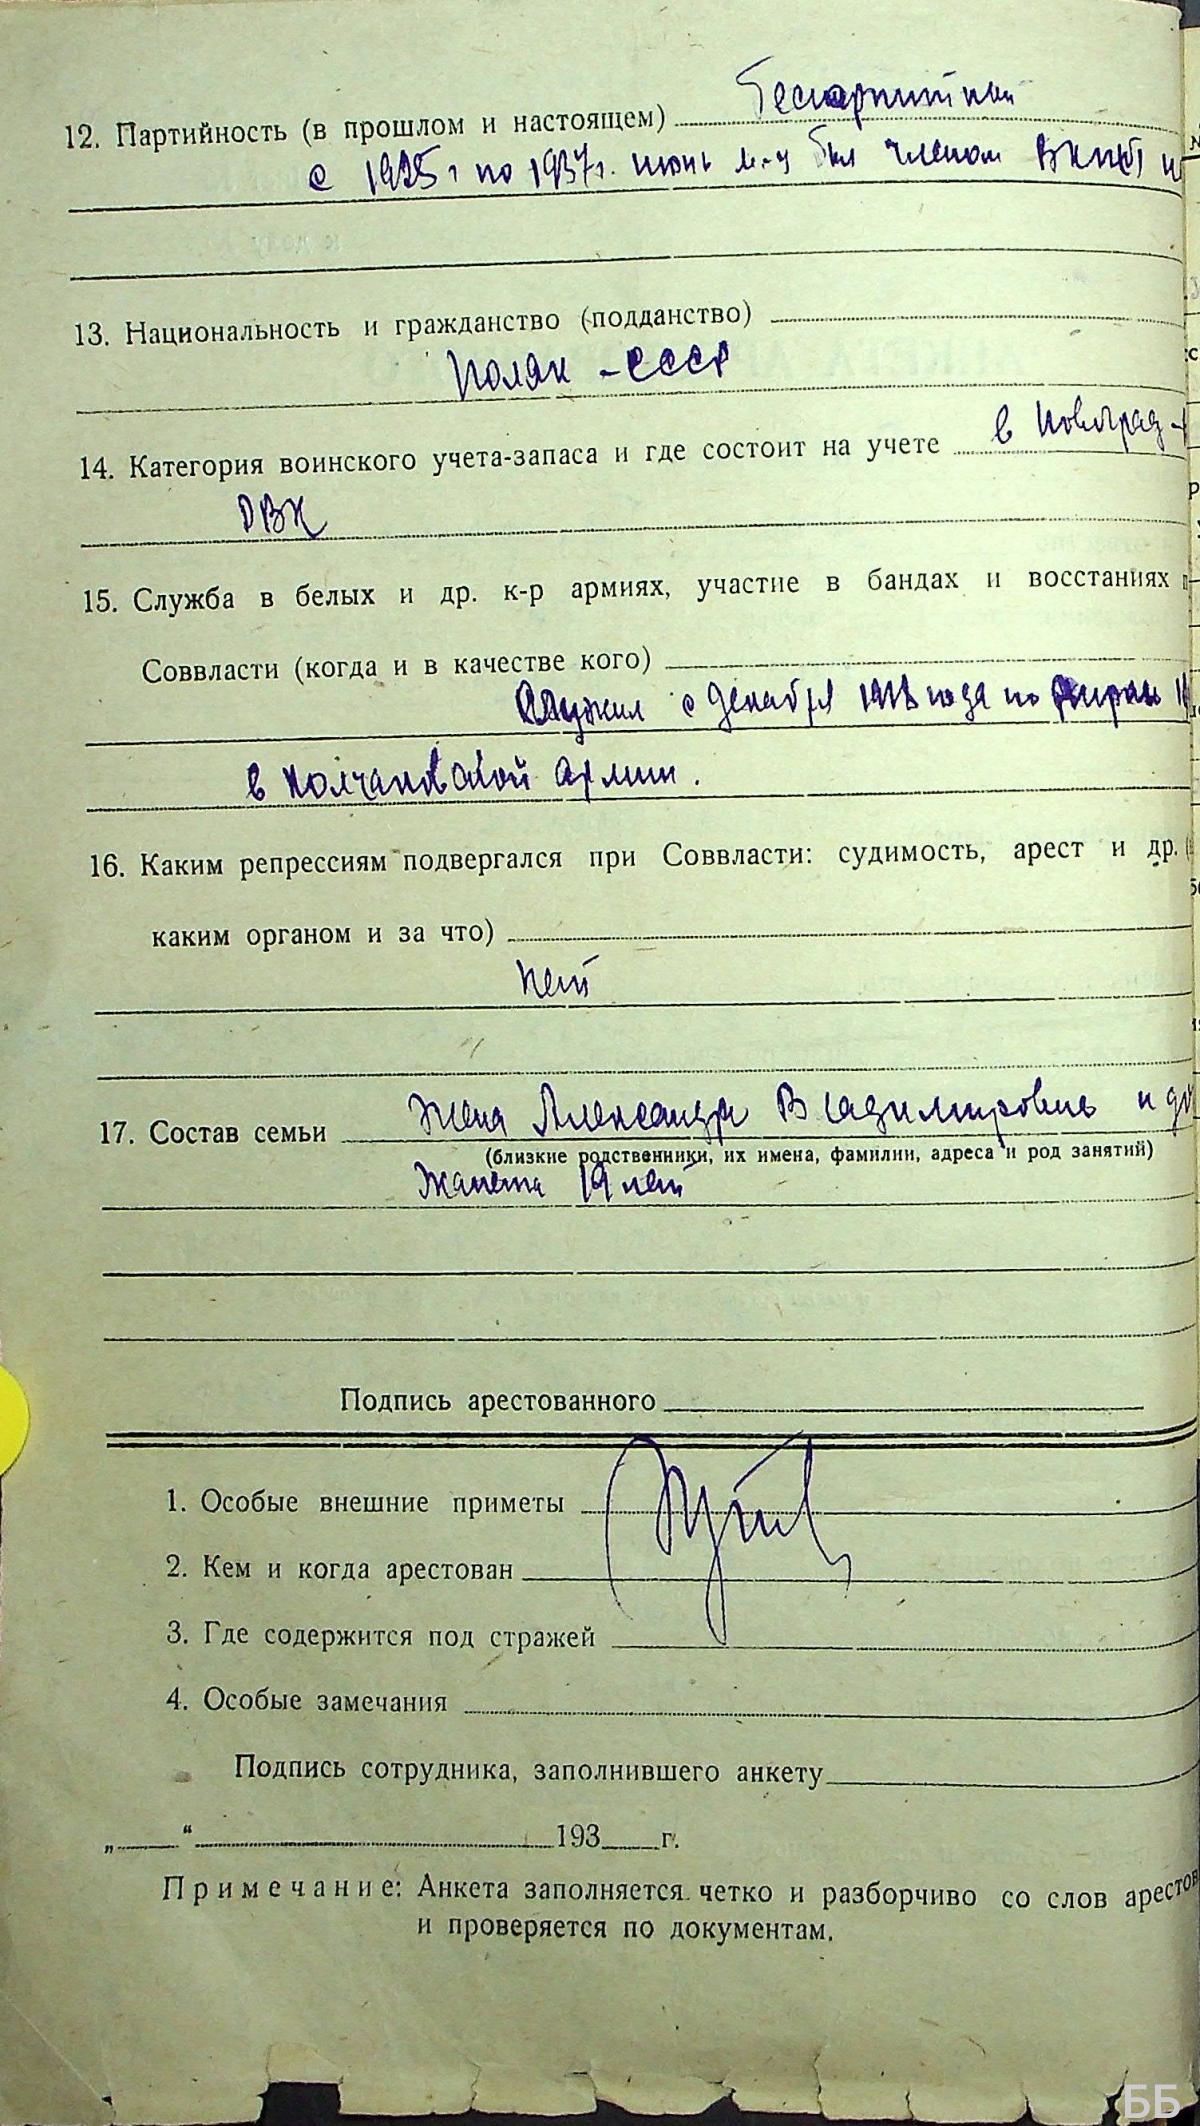 12. Партийность (в прошлом и настоящем) беспартийный
с 1925 г по 1937 г. июнь м-ц был членом ВКП(б)
13. Национальность и гражданство (подданство)
Поляк - СССР
14. Категория воинского учета-запаса и где состоит на учете в Новоград-
РВК
15. Служба в белых и др. к-р армиях, участие в бандах и восстаниях
Соввласти (когда и в качестве кого)
Служил с декабря 1918 года по
в Колчаковской армии.
16. Каким репрессиям подвергался при Соввласти: судимость, арест и др.
каким органом и за что)
нет
17. Состав семьи Жена Александра Владимировна и
(близкие родственники, их имена, фамилии, адреса и род занятий)
Жанета 19 лет
Подпись арестованного
1. Особые внешние приметы
2. Кем и когда арестован
3. Где содержится под стражей
4. Особые замечания
Подпись сотрудника, заполнившего анкету
„ “ 193 г.
Примечание: Анкета заполняется четко и разборчиво со слов арестов
и проверяется по документам.
ББ